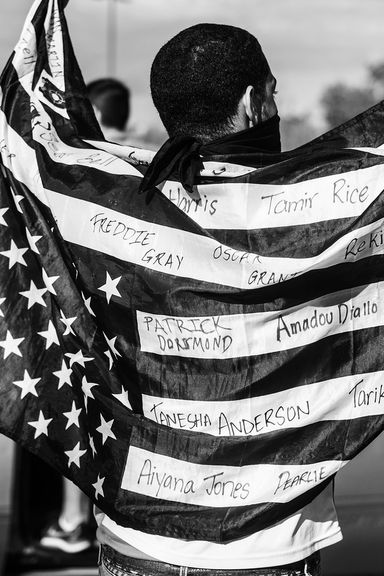 Bell
Harris Tamir Rice
FREDDIE GRAY OSCAR GRANT Reki
PATRICK DORISMOND Amadou Diallo
TANESHA ANDERSON Tarik
Aiyana Jones PEARLIE